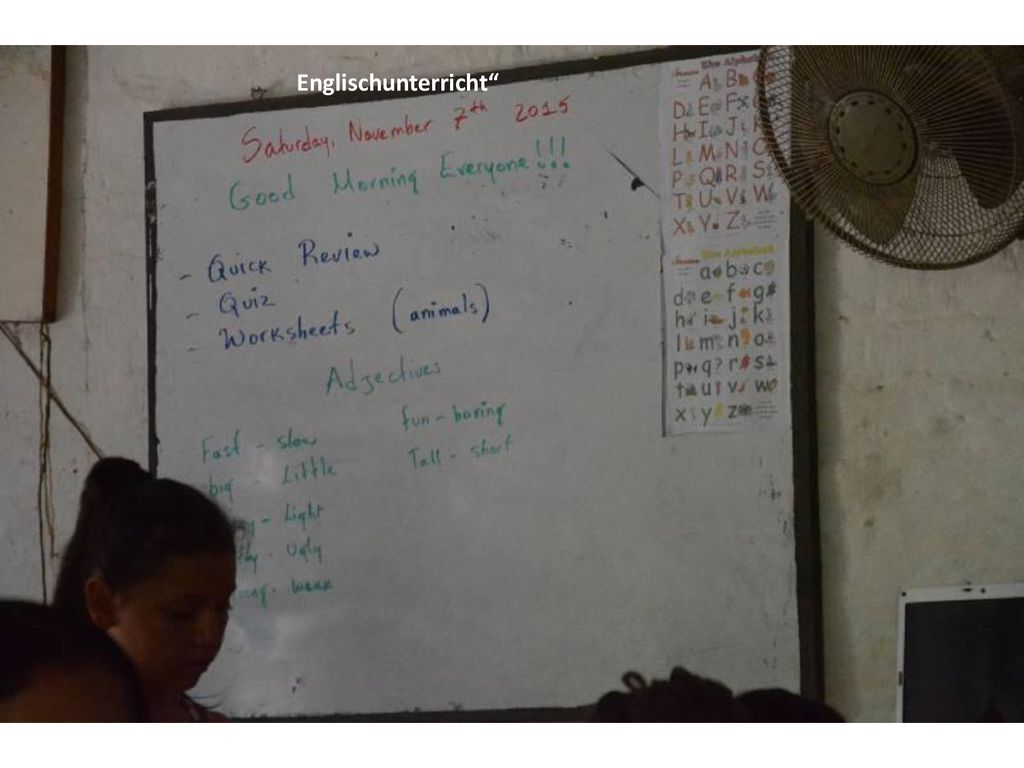 Englischunterricht“
Saturday, November 7th 2015
Good Morning Everyone!!!
- Quick Review
- Quiz
- Worksheets (animals)
Adjectives
Fast - slow
big Little
Light
Ugly
weak
fun - boring
Tall - short
The Alphabet
A B
D E F
H I J K
L M N O
P Q R S
T U V W
X Y Z
The Alphabet
a b c
d e f g
h i j k
l m n o
p q r s
t u v w
x y z